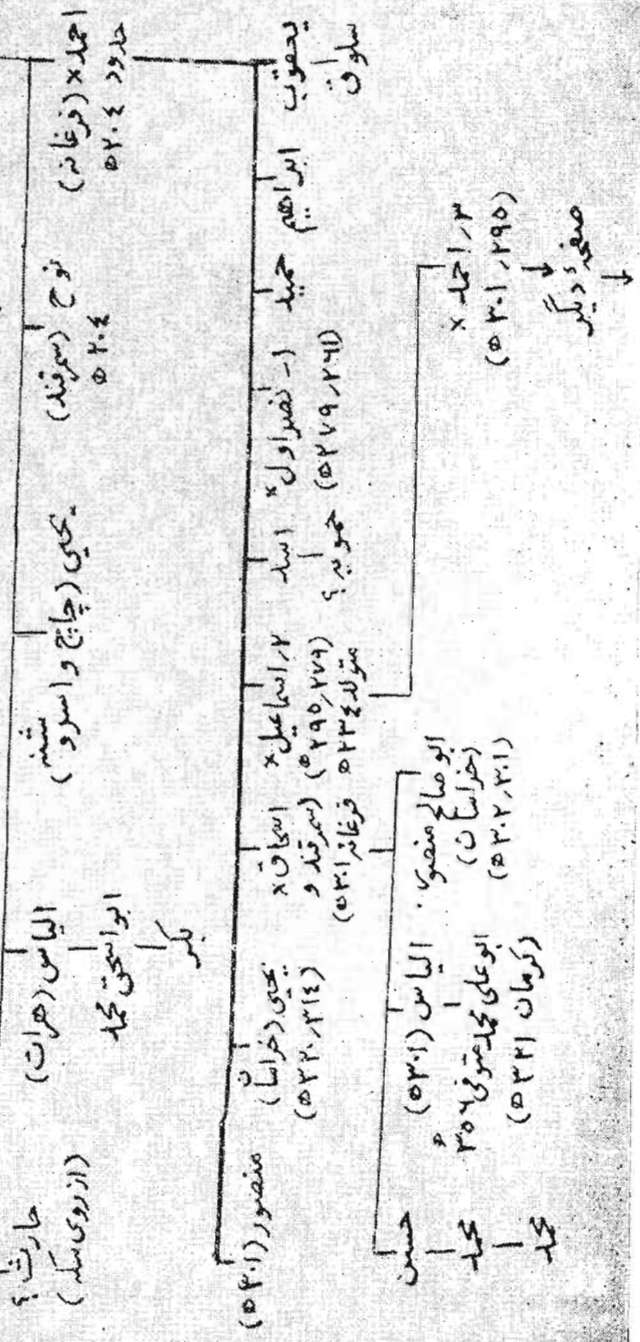 احمد× (فرغانه)
حدود ۲۰۴ ه
نوح (سمرقند)
۲۰۴ ه
یحیی (چاچ و اسروشنه)
الیاس (هرات)
ابو اسحق محمد
بکر
حارث؟
(از روی سکه)
یعقوب
سلوق
ابراهیم
حمید
۱- نصر اول×
(۲۶۱، ۲۷۹ ه)
اسد
حمویه؟
۲، اسماعیل×
(۲۷۹، ۲۹۵ ه)
متولد ۲۳۴ ه
اسحاق×
(سمرقند و
فرغانه ۳۰۱ ه)
یحیی (خراسان)
(۳۱۴، ۳۲۰ ه)
منصور (۳۰۱ ه)
۳، احمد×
(۲۹۵، ۳۰۱ ه)
صفحهٔ دیگر
ابو صالح منصور
(خراسان)
(۳۰۱، ۳۰۲ ه)
الیاس (۳۰۱ ه)
ابو علی محمد متوفی ۳۵۶ ه
(کرمان ۳۲۱ ه)
حسین
محمد
محمد